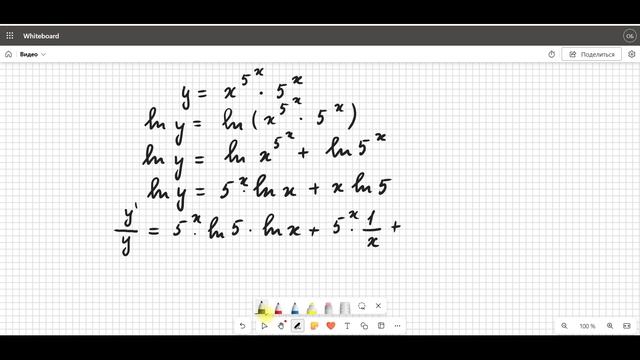 Whiteboard
ОБ
Видео
Поделиться
y = x^{5^x} · 5^x
ln y = ln ( x^{5^x} · 5^x )
ln y = ln x^{5^x} + ln 5^x
ln y = 5^x · ln x + x ln 5
y'/y = 5^x · ln 5 · ln x + 5^x · 1/x +
100 %